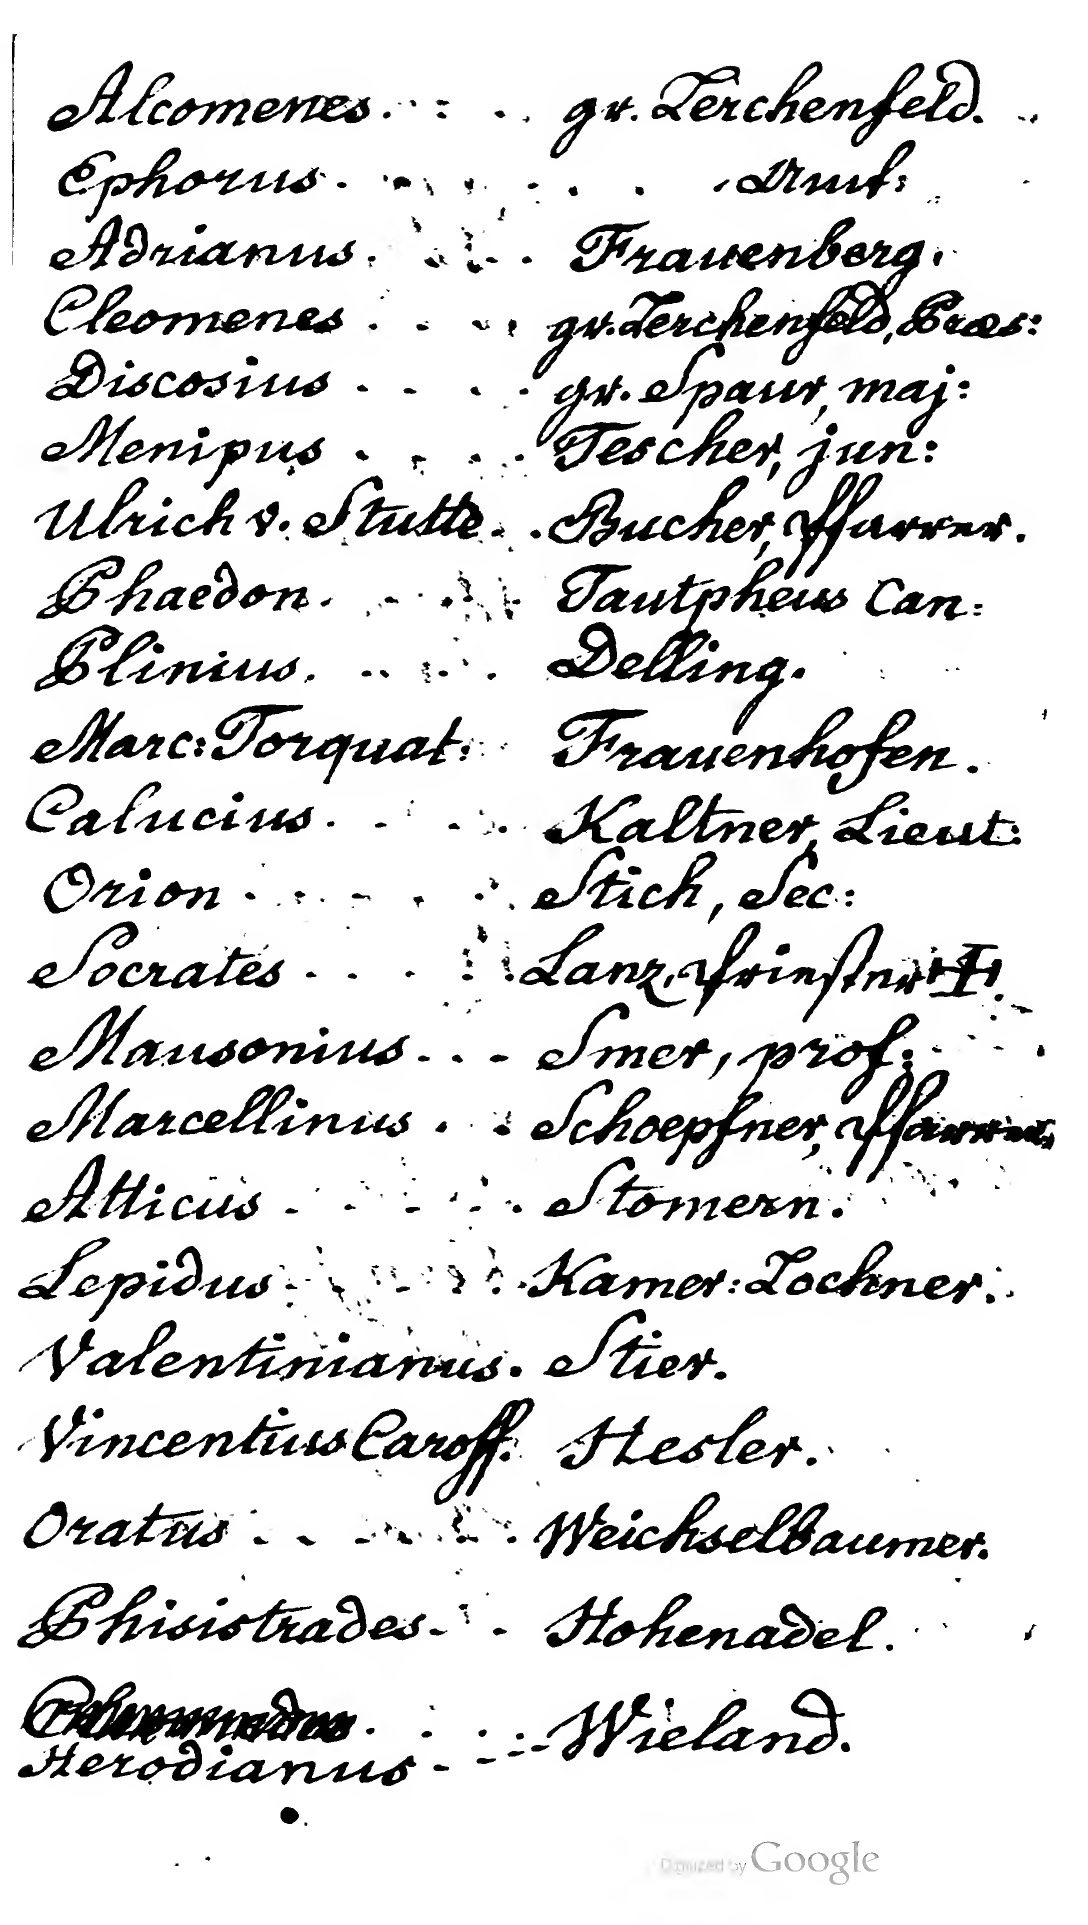 Alcomenes. gr. Lerchenfeld.
Ephorus.
Adrianus. Frauenberg.
Cleomenes gr. Lerchenfeld, Præs:
Discosius gr. Spaur, maj:
Menipus Tescher, jun:
Ulrich v. Stutte. Bucher, Pfarrer.
Phaedon. Tautpheus Can:
Plinius. Delling.
Marc: Torquat: Frauenhofen.
Calucius. Kaltner, Lieut:
Orion Stich, Sec:
Socrates Lanz, Priester
Mausonius Smer, prof:
Marcellinus Schoepfner, Pfarrer.
Atticus Stomern.
Lepidus Kamer: Lochner.
Valentinianus. Stier.
Vincentius Caroff. Hesler.
Oratus Weichselbaumer.
Phisistrades Hohenadel.
Wieland.
Herodianus
Digitized by Google